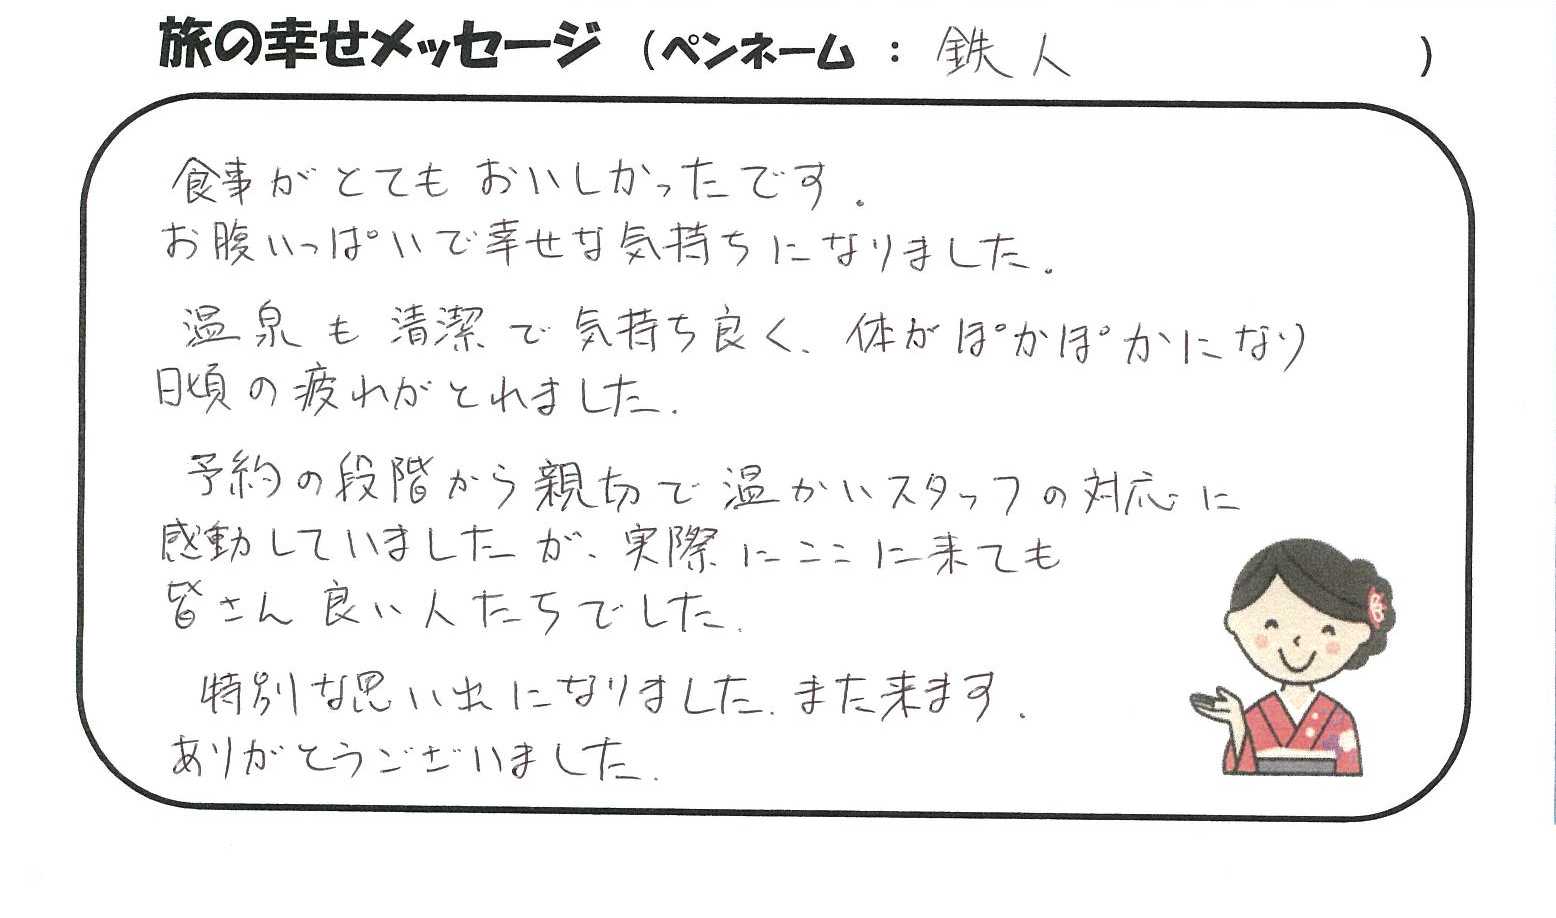 旅の幸せメッセージ（ペンネーム：鉄人）
食事がとてもおいしかったです.
お腹いっぱいで幸せな気持ちになりました.
温泉も清潔で気持ち良く、体がぽかぽかになり
日頃の疲れがとれました.
予約の段階から親切で温かいスタッフの対応に
感動していましたが、実際にここに来ても
皆さん良い人たちでした.
特別な思い出になりました.また来ます.
ありがとうございました.